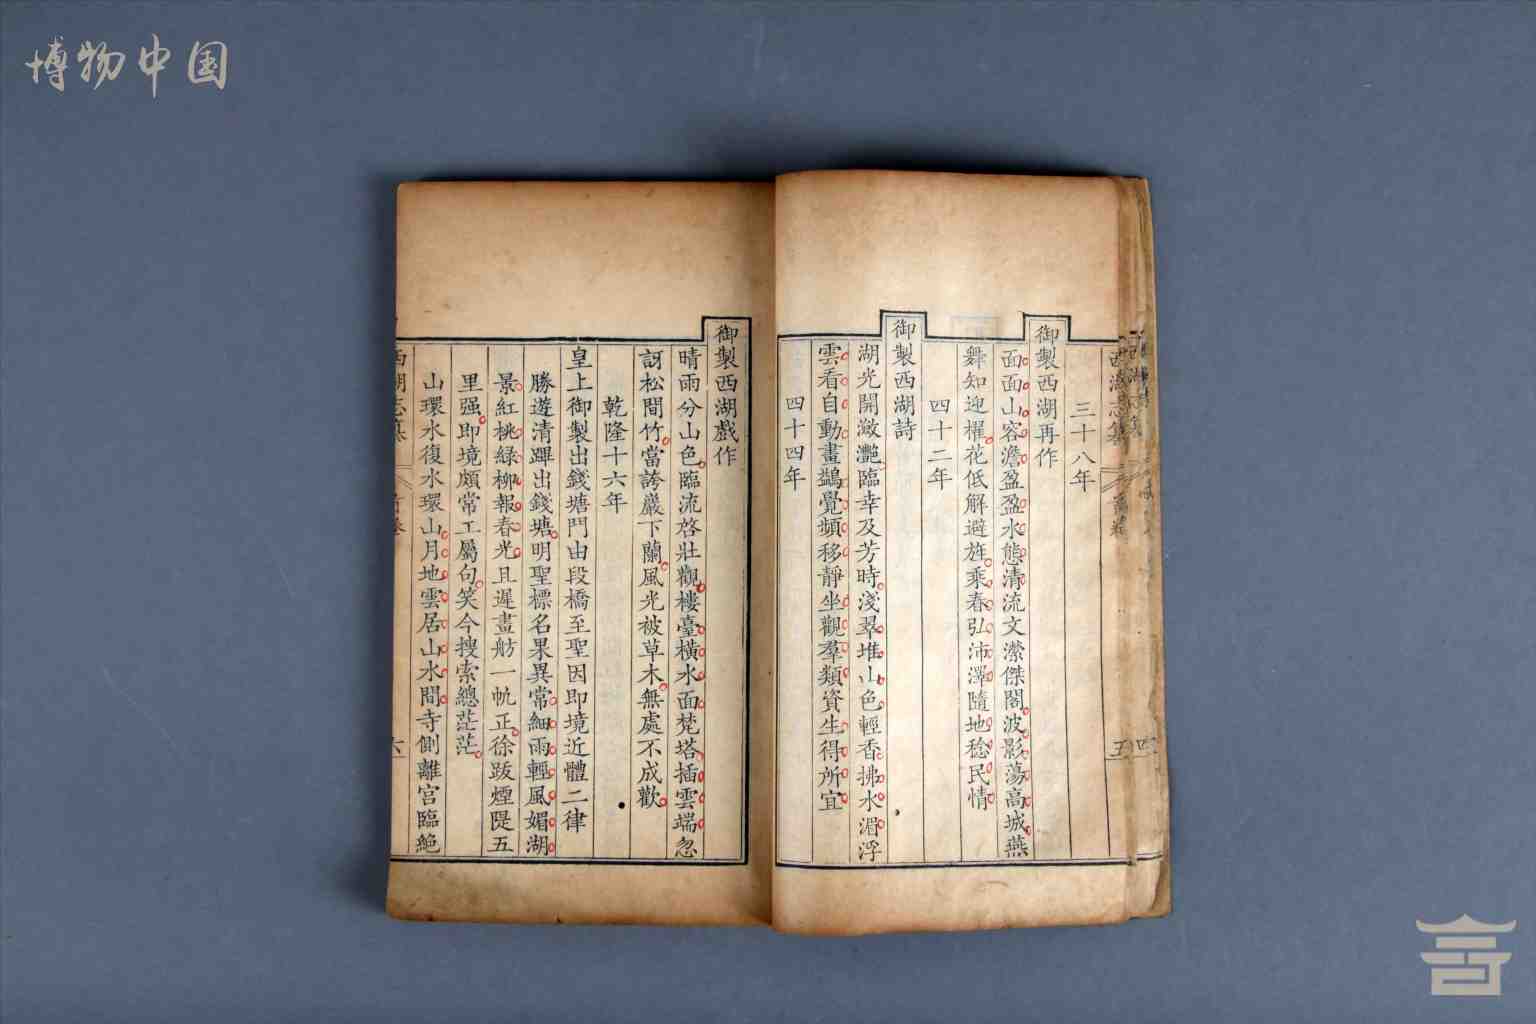 博物中国
三十八年
御製西湖再作
面面山容澹盈盈水態清流文瀠傑閣波影蕩高城燕
舞知迎櫂花低解避旌乘春弘沛澤隨地稔民情
四十二年
御製西湖詩
湖光開瀲灧臨幸及芳時淺翠堆山色輕香拂水湄浮
雲看自動畫鷁覺頻移靜坐觀羣類資生得所宜
四十四年
御製西湖戲作
晴雨分山色臨流啓壯觀樓臺橫水面梵塔插雲端忽
訝松間竹當誇巖下蘭風光被草木無處不成歡
乾隆十六年
皇上御製出錢塘門由段橋至聖因即境近體二律
勝遊清蹕出錢塘明聖標名果異常細雨輕風媚湖
景紅桃綠柳報春光且遲畫舫一帆正徐跋煙隄五
里强即境頗常工屬句笑今搜索總茫茫
山環水復水環山月地雲居山水間寺側離宮臨絶
西湖志纂
六